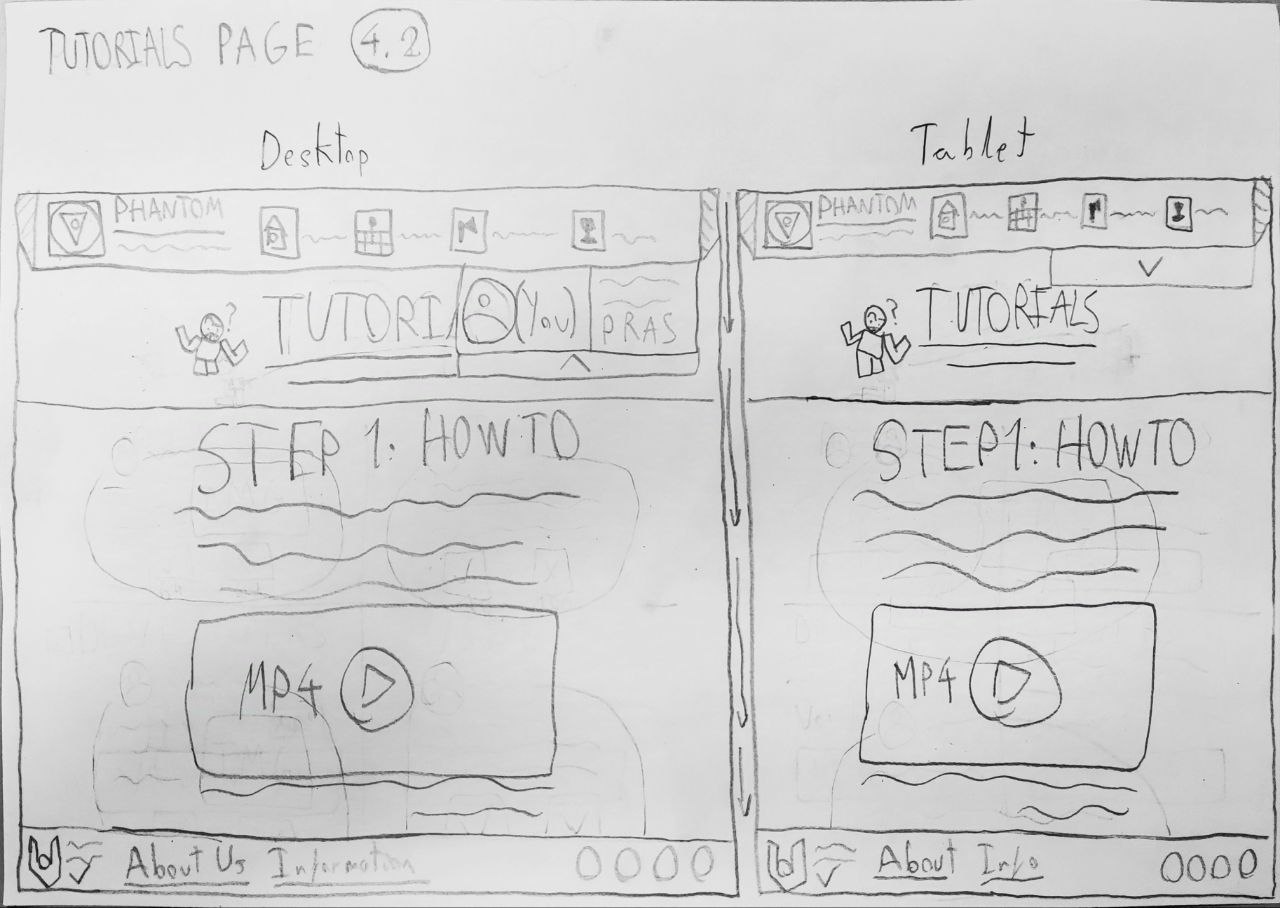 TUTORIALS PAGE 4.2
Desktop
PHANTOM
TUTORI
(You)
PRAS
STEP 1: HOW TO
MP4
About Us Information
Tablet
PHANTOM
TUTORIALS
?
STEP 1: HOW TO
MP4
About Info